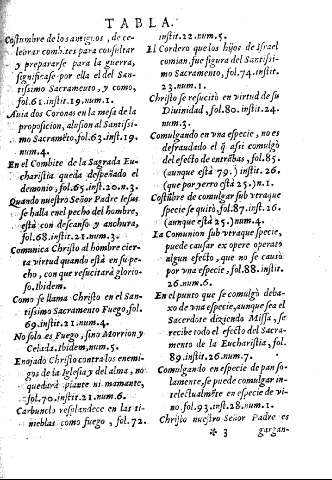 TABLA.
Costumbre de los antiguos, de ce-
lebrar combites para consultar
y prepararse para la guerra,
significase por ella el del San-
tissimo Sacramento, y como,
fol.61.instit.19.num.1.
Auia dos Coronas en la mesa de la
proposicion, alusion al Santissi-
mo Sacramẽto, fol.63.instit.19.
num.4.
En el Combite de la Sagrada Eu-
charistia queda despeñado el
demonio, fol.65.inst.20.n.3.
Quando nuestro Señor Padre Iesus
se halla en el pecho del hombre,
està con descanso y anchura,
fol.68.instit.21.num.3.
Comunica Christo al hombre cier-
ta virtud quando està en su pe-
cho, con que resucitarà glorio-
so. Ibidem.
Como se llama Christo en el San-
tissimo Sacramento Fuego, fol.
69.instit.21.num.4.
No solo es Fuego, sino Morrion y
Celada. Ibidem, num.5.
Enojado Christo contra los enemi-
gos de la Iglesia y del alma, no
quedarà piante ni mamante,
fol.70.instit.21.num.6.
Carbunclo resplandece en las ti-
nieblas como fuego, fol.72.
instit.22.num.5.
El Cordero que los hijos de Israel
comian, fue figura del Santissi-
mo Sacramento, fol.74.instit.
23.num.1.
Christo se resucitò en virtud de su
Diuinidad, fol.80.instit.24.
num.3.
Comulgando en vna especie, no es
defraudado el q̃ assi comulgò
del efecto de entrãbas, fol.85.
(aunque està 79.) instit.26.
(que por yerro està 25.) n.1.
Costũbre de comulgar sub vtraque
specie se quitò, fol.87.instit.26.
(aunque està 25.) num.4.
La Comunion sub vtraque specie,
puede causar ex opere operato
algun efecto, que no se causò
por vna especie, fol.88.instit.
26.num.6.
En el punto que se comulgò deba-
xo de vna especie, aunque sea el
Sacerdote diziendo Missa, se
recibe todo el efecto del Sacra-
mento de la Eucharistia, fol.
89.instit.26.num.7.
Comulgando en especie de pan so-
lamente, se puede comulgar in-
telectualmẽte en especie de vi-
no, fol.93.inst.28.num.1.
Christo nuestro Señor Padre es
* 3 gargan-